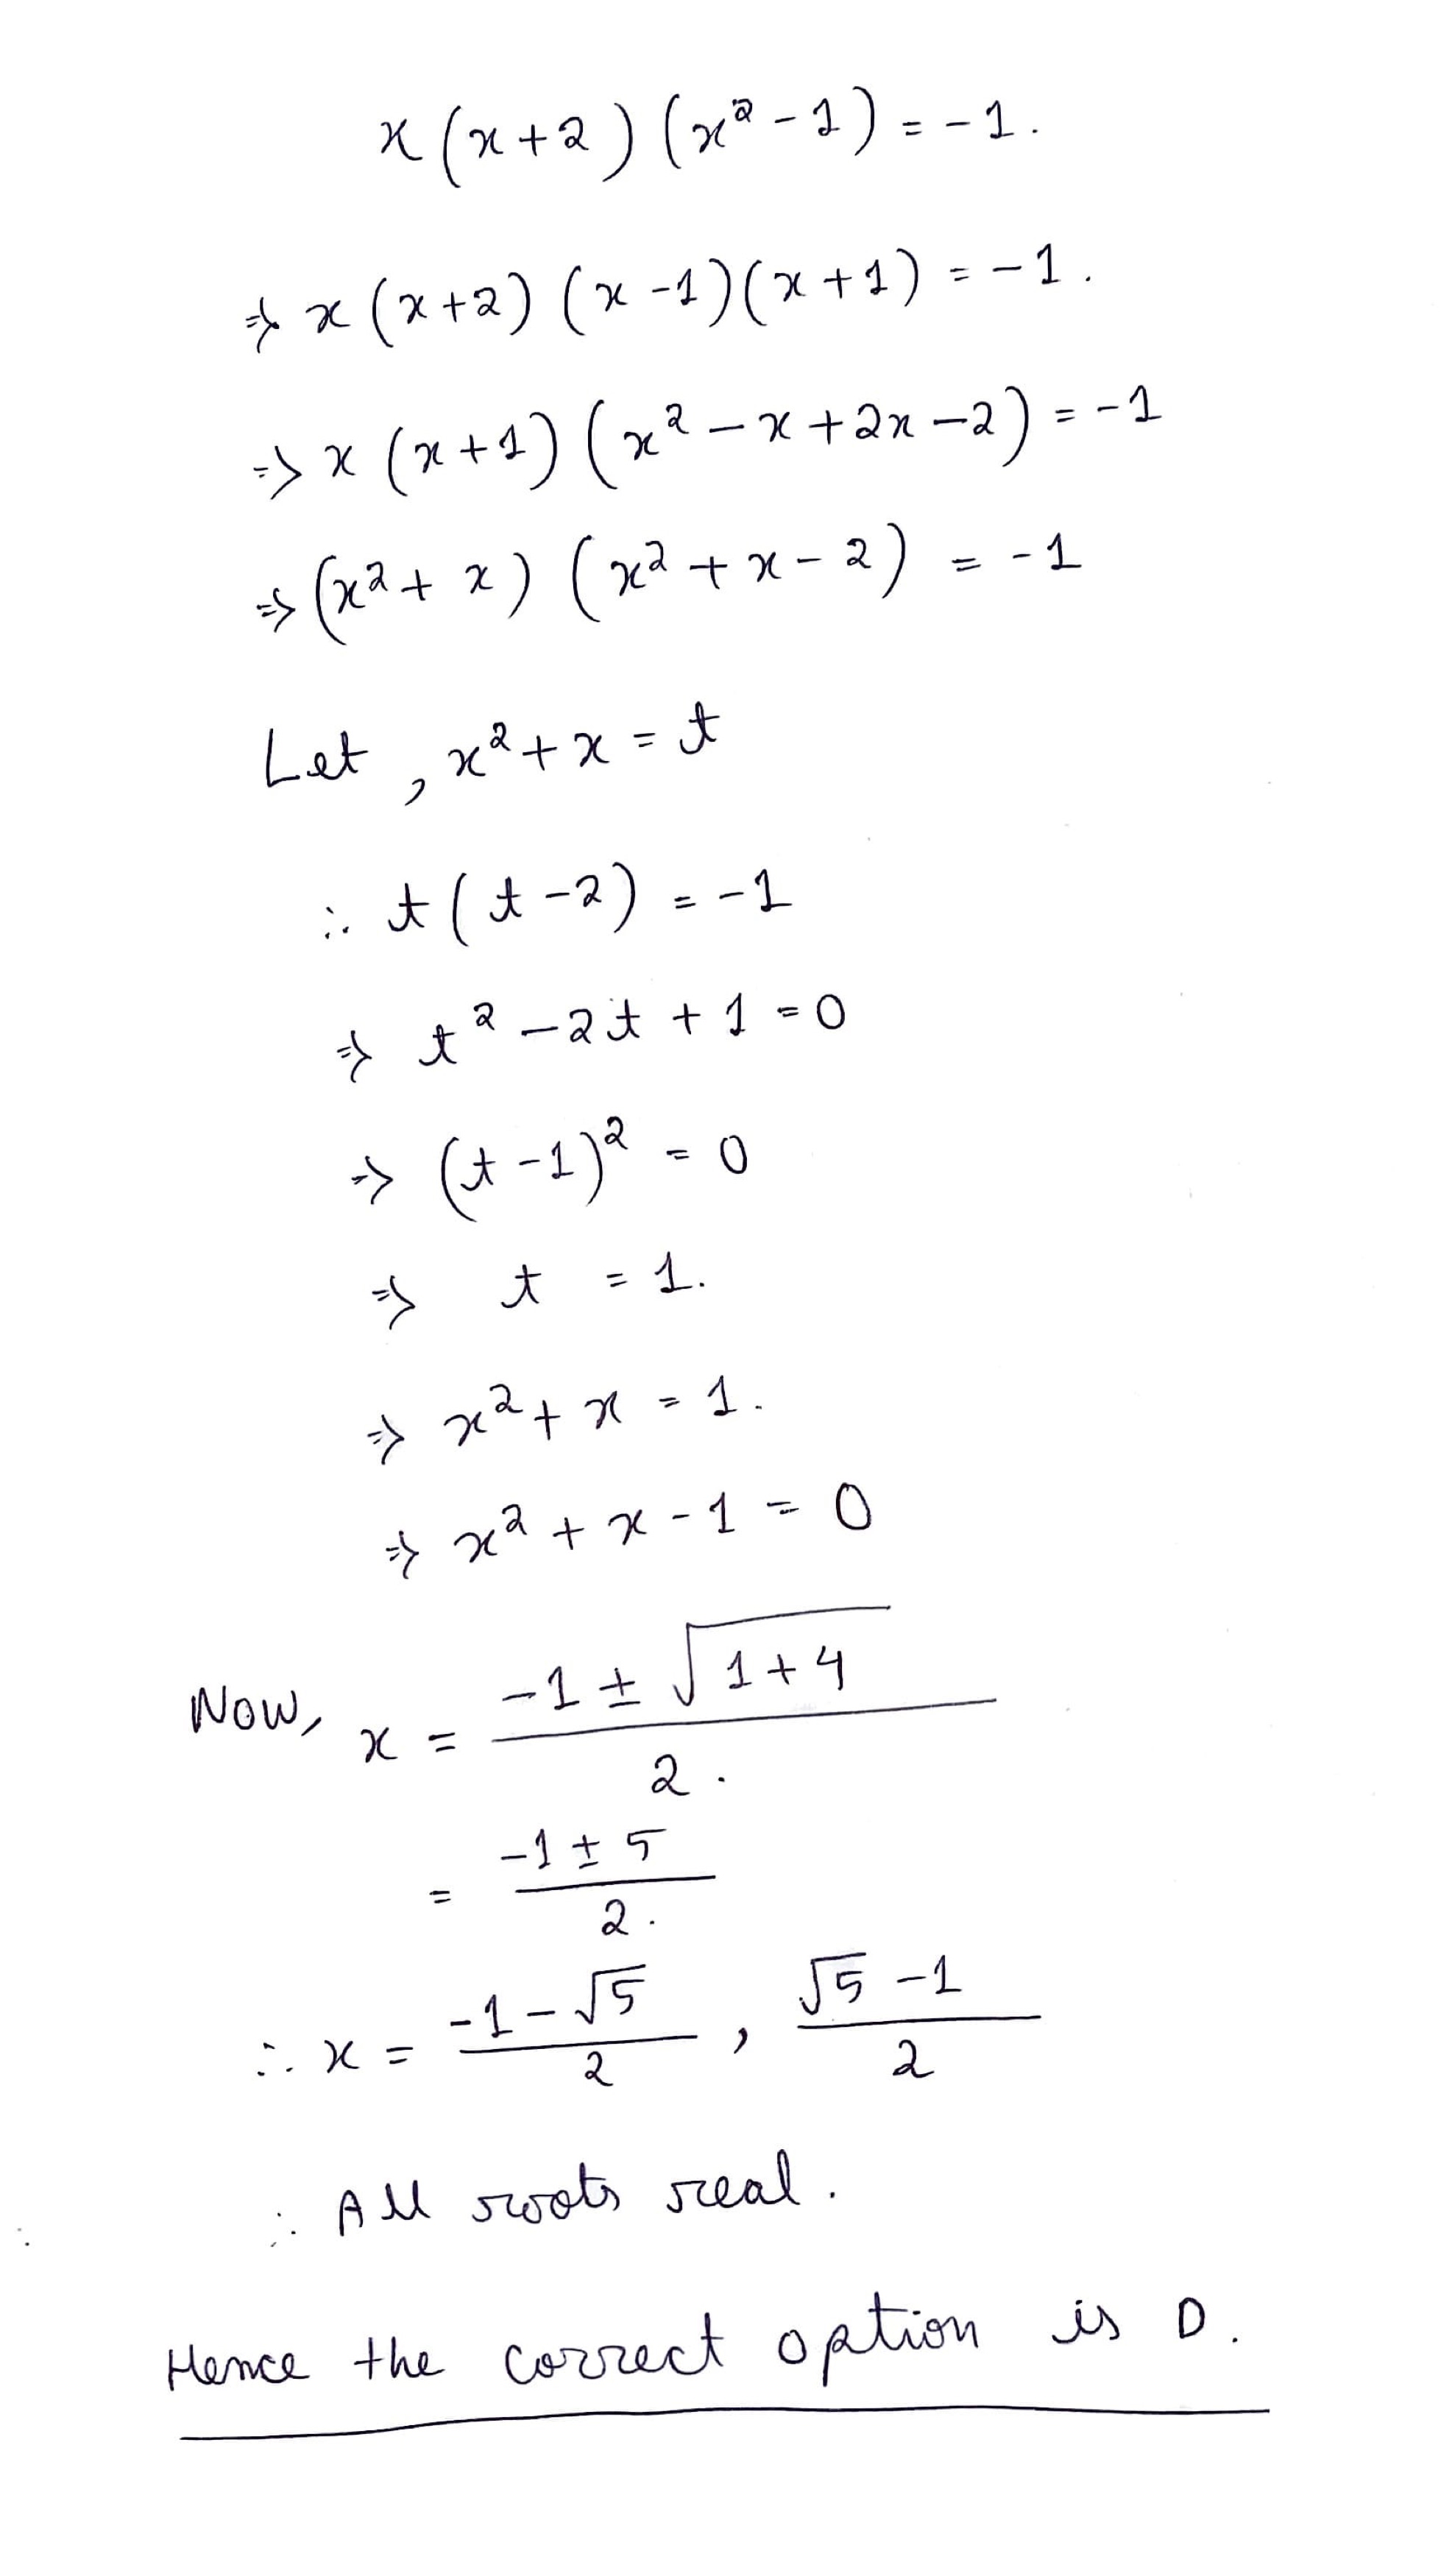 x(x+2)(x²-1) = -1.
⇒ x(x+2)(x-1)(x+1) = -1.
⇒ x(x+1)(x²-x+2x-2) = -1
⇒ (x²+x)(x²+x-2) = -1
Let, x²+x = t
∴ t(t-2) = -1
⇒ t²-2t+1 = 0
⇒ (t-1)² = 0
⇒ t = 1.
⇒ x²+x = 1.
⇒ x²+x-1 = 0
Now, x = (-1 ± √(1+4))/2.
= (-1 ± 5)/2.
∴ x = (-1-√5)/2, (√5-1)/2
∴ All roots real.
Hence the correct option is D.